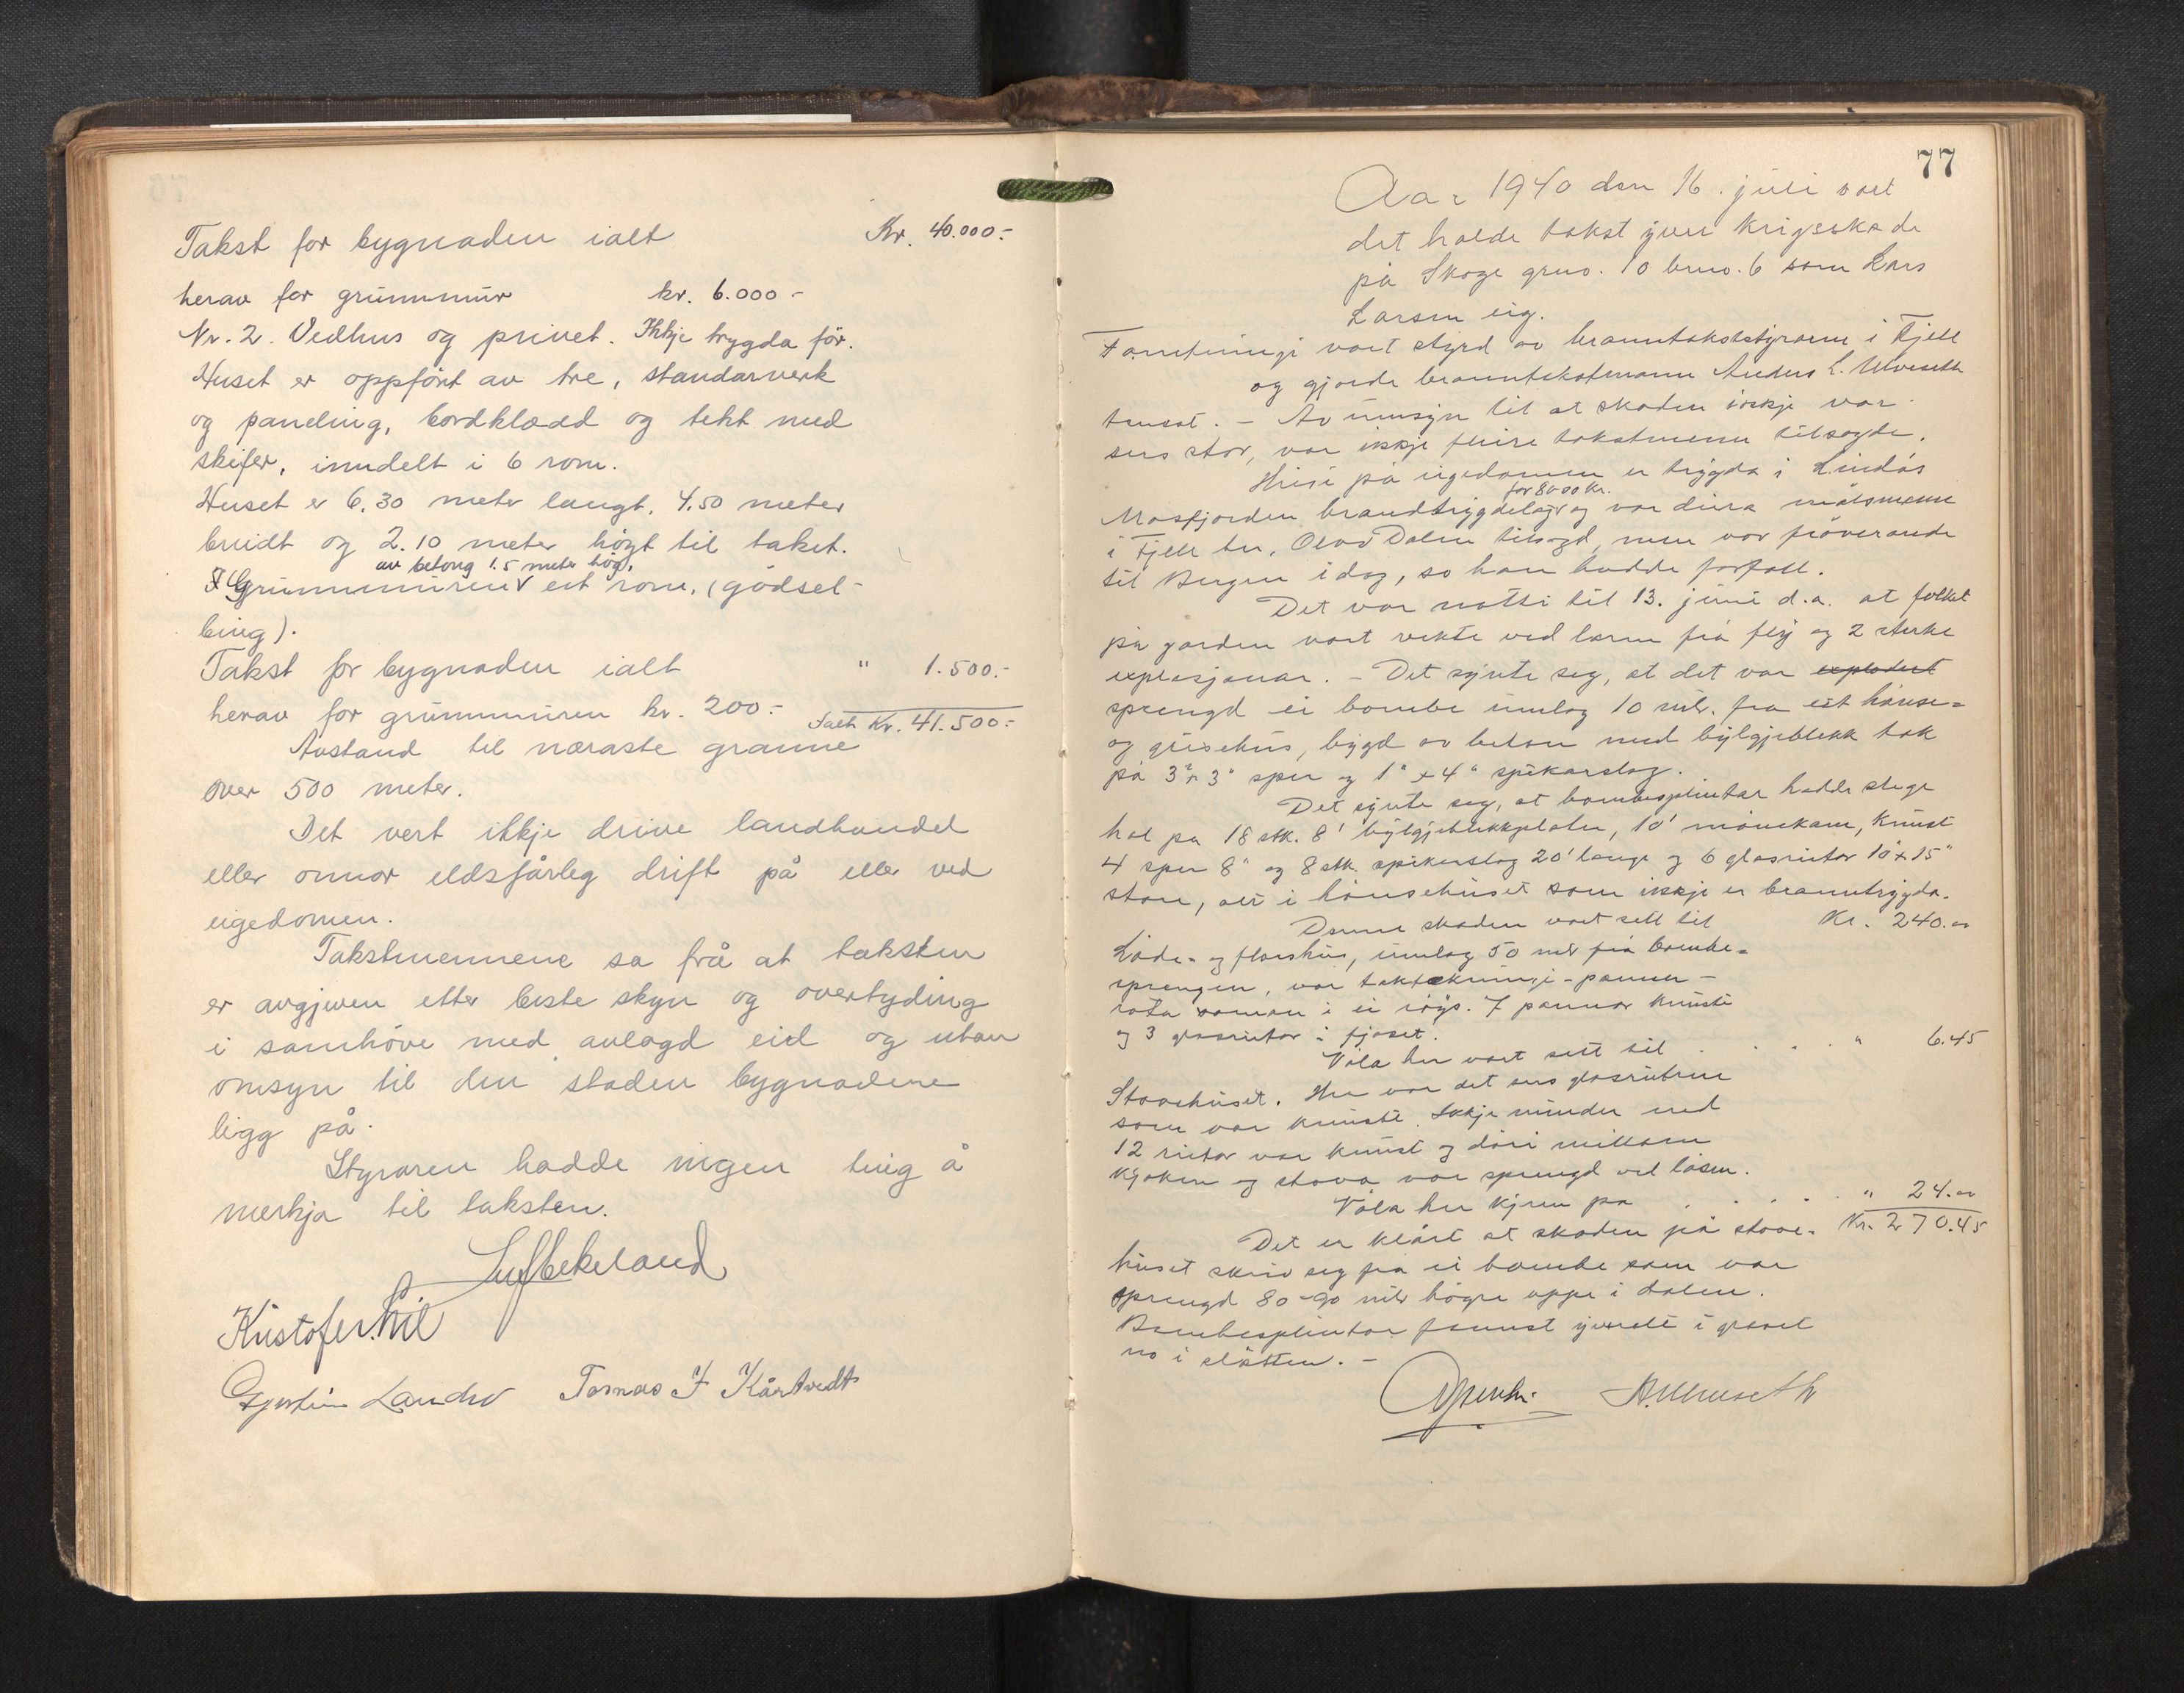 Takst for bygnaden ialt Kr. 40.000.-
herav for grunnmur kr. 6.000.-
Nr. 2. Vedhus og privet. Ikkje trygda för.
Huset er oppfört av tre, standarverk
og paneling, bordklædd og tekt med
skifer, inndelt i 6 rom.
Huset er 6.30 meter langt, 4.50 meter
breidt og 2.10 meter högt til taket.
av betong 1.5 meter hög,
I Grunnmuren eit rom, (gödsel-
bing).
Takst for bygnaden ialt " 1.500.-
herav for grunnmuren kr. 200.- Ialt Kr. 41.500.-
Avstand til næraste granne
over 500 meter.
Det vert ikkje drive landhandel
eller onnor eldsfårleg drift på eller ved
eigedomen.
Takstmennene sa frå at taksten
er avgjeven etter beste skyn og overtyding
i samhöve med avlagd eid og utan
omsyn til den staden bygnadene
ligg på.
Styraren hadde ingen ting å
merkja til taksten.
Kristofer
Landro Tomas I Kårtvedt
77
Aar 1940 den 16. juli vart
det halde takst yver krigsskade
på Skoge gnr. 10 bnr. 6 som Lars
Larsen eig.
Forretningi vart styrd av branntakststyraren i Fjell
og gjorde branntakstmann Anders L. Ulveseth
tenest. - Av umsyn til at skaden ikkje var
sers stor, var ikkje fleire takstmenn tilsagde.
Husi på eigedomen er trygda i Lindås
for 8000 kr.
Masfjorden brandtrygdelag og var deira målsmenn
i Fjell hr. Olav Dalen tilsagd, men var fråverande
til Bergen idag, so han hadde forfall.
Det var natti til 13. juni d.a. at folket
på garden vart vekte ved larm frå fly og 2 sterke
explosjonar. - Det synte seg, at det var explodert
sprengd ei bombe umlag 10 mtr. fra eit hönse-
og grisehus, bygd av beton med bylgjeblekk tak
på 3" x 3" sper og 1" x 4" spikarslag.
Det synte seg, at bombesplintar hadde slege
hol på 18 stk. 8' bylgjeblekkplater, 10' mönekam, knust
4 sper 8" og 8 stk. spikerslag 20' lange og 6 glasrutor 10" x 15"
store, alt i hönsehuset som ikkje er branntrygda.
Denne skaden vart sett til Kr. 240.00
Löde- og florshus, umlag 50 mtr frå bombe-
sprengen, var taktekningi - pannen -
rota saman i ei röys. 7 pannor knuste
og 3 glasrutor i fjoset.
Völa her vart sett til . . . . " 6.45
Stovehuset. Her var det sers glasrutene
som var knuste. Ikkje minder end
12 rutor var knust og döri millom
kjöken og stova var sprengd ved låsen.
Völa her kjem på . . . . . " 24.00
Kr. 270.45
Det er klårt at skaden på stove-
huset skriv seg fra ei bombe som var
sprengd 80-90 mtr högre uppe i dalen.
Bombesplintar fannst i graset
no i slåtten. -
A. Ulveseth